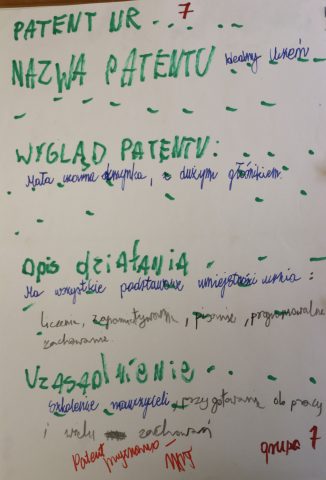 PATENT NR 7
NAZWA PATENTU idealny uczeń
WYGLĄD PATENTU:
Mała czarna skrzynka, z dużym głośnikiem.
Opis działania
Ma wszystkie podstawowe umiejętności ucznia:
liczenie, zapamiętywanie, pisanie, programowalne
zachowanie.
Uzasadnienie
Szkolenie nauczycieli, przygotowanie do pracy
i wielu zachowań
Patent
przyznano
grupa 7